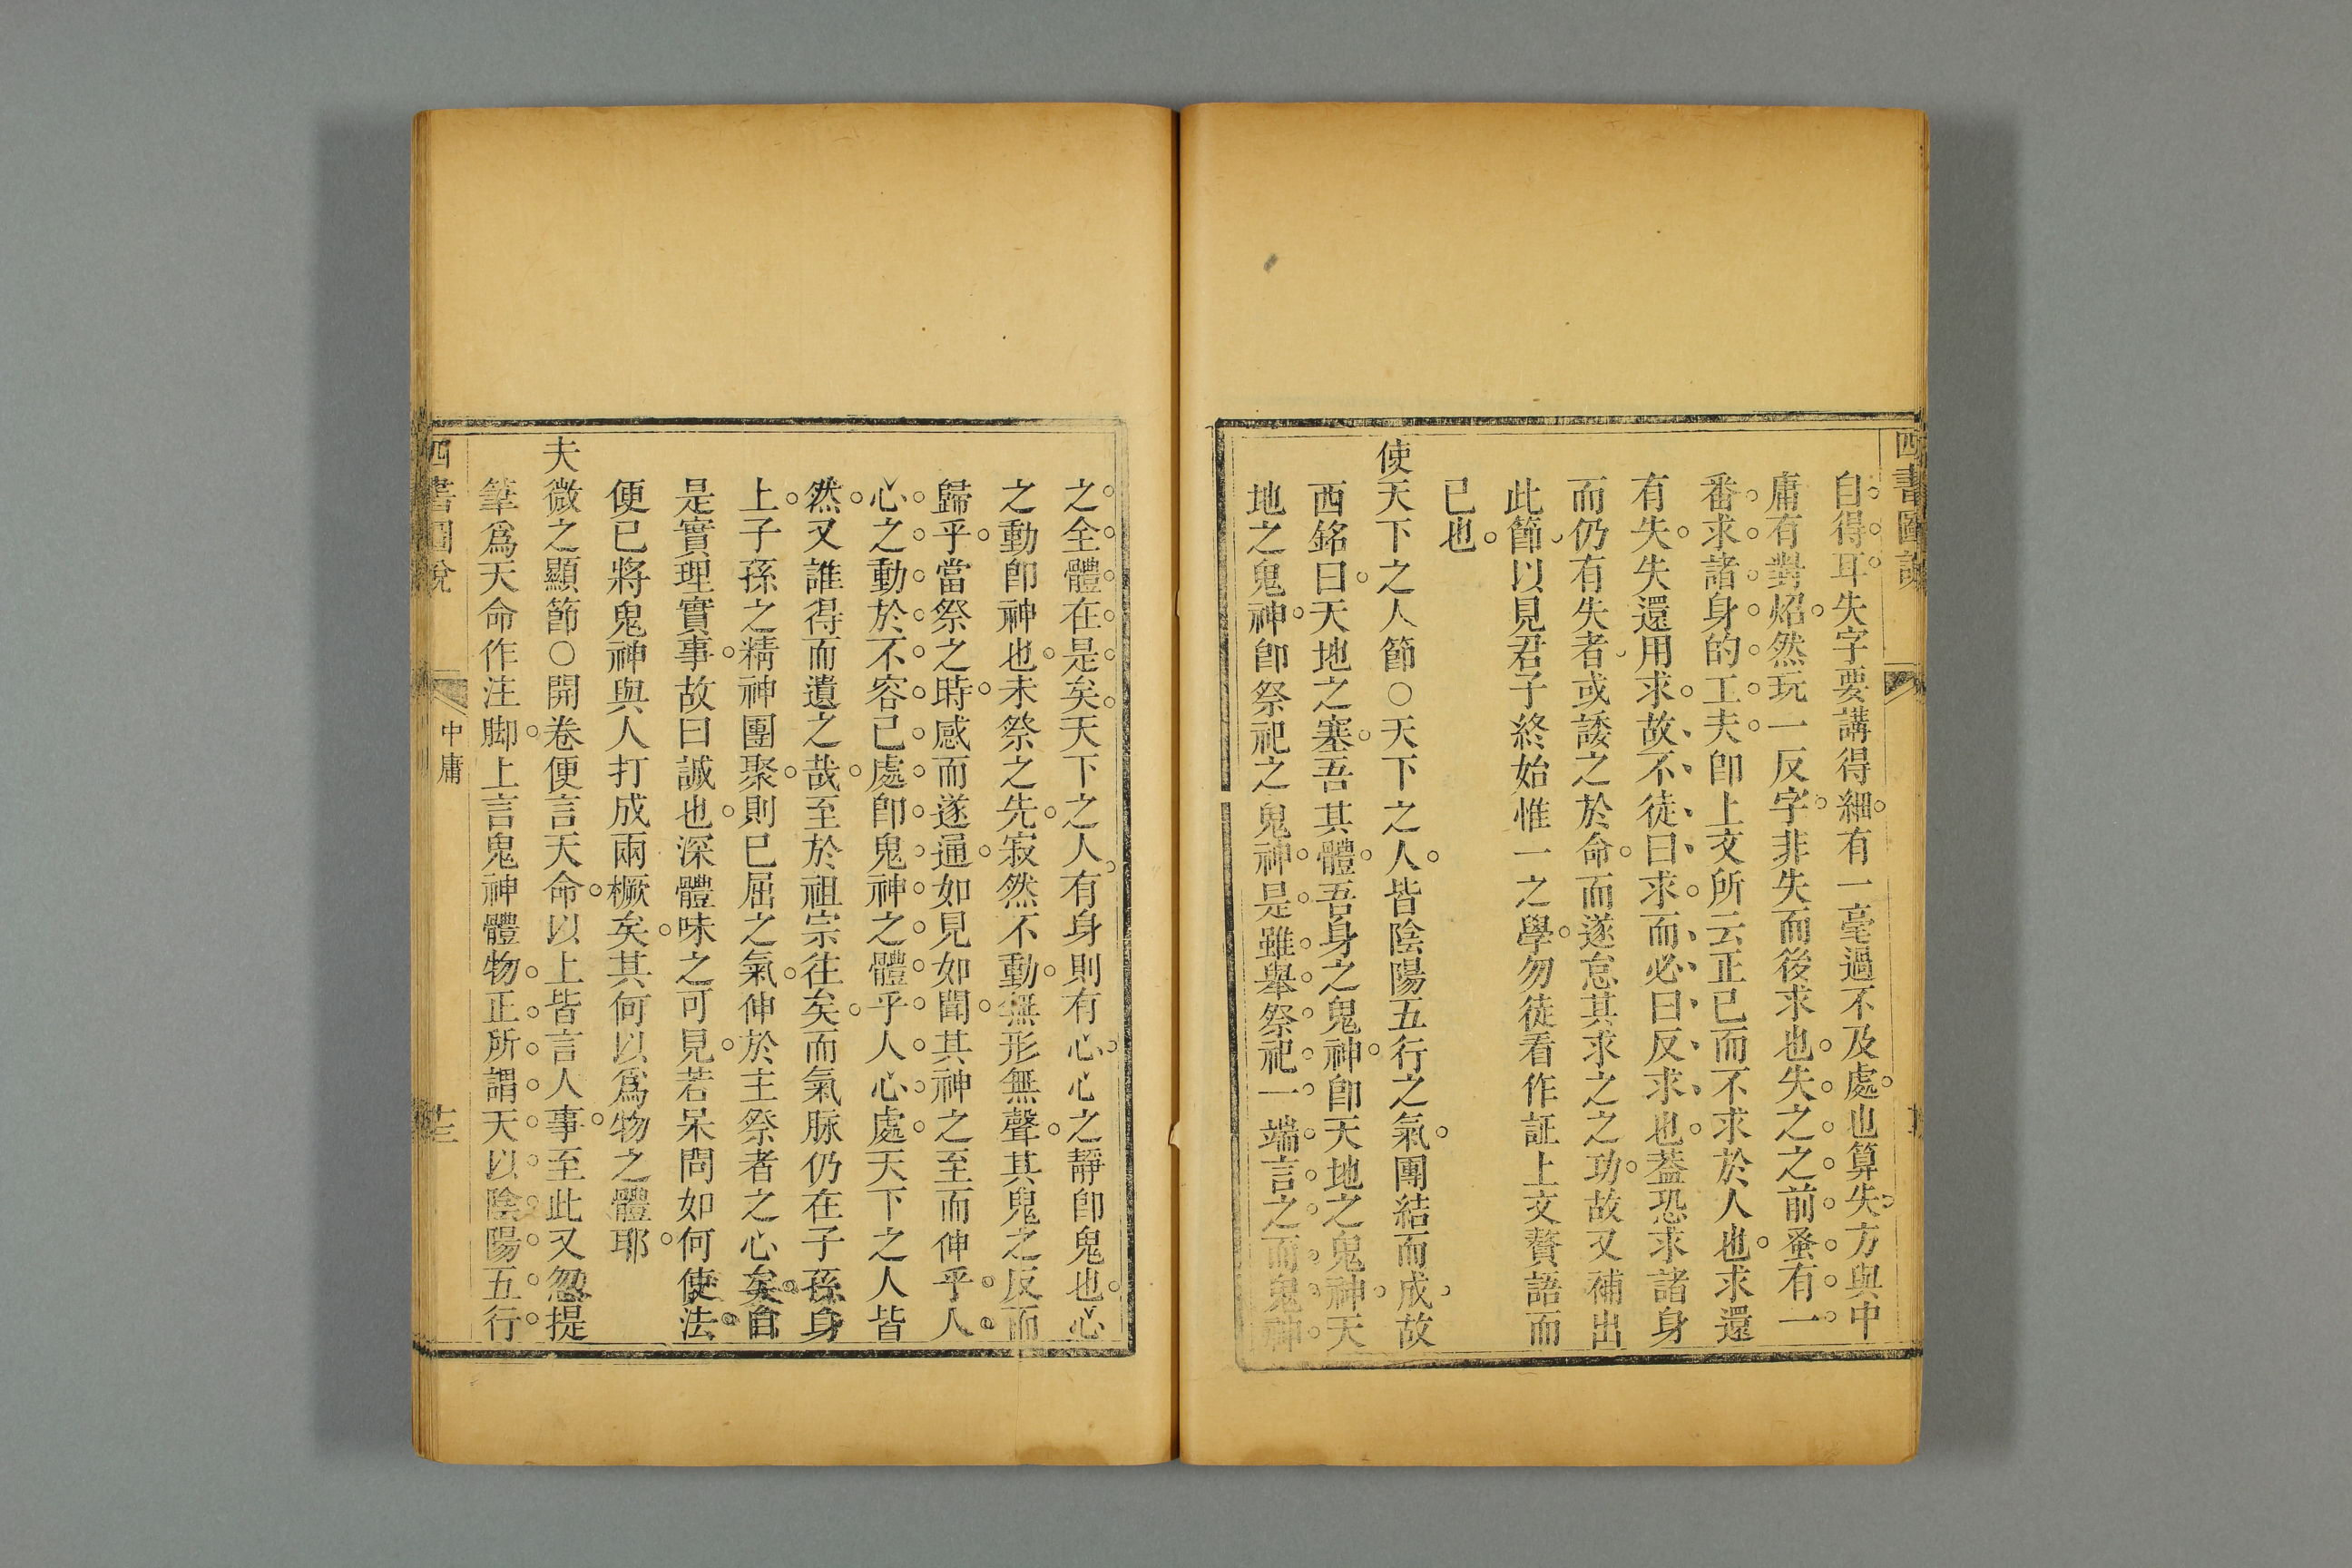 四書圖說
自得耳失字要講得細有一毫過不及處也算失方與中
庸有對炤然玩一反字非失而後求也失之之前蚤有一
番求諸身的工夫卽上文所云正已而不求於人也求還
有失失還用求故不徒曰求而必曰反求也葢恐求諸身
而仍有失者或諉之於命而遂怠其求之之功故又補出
此節以見君子終始惟一之學勿徒看作証上文贅語而
已也
使天下之人節○天下之人皆陰陽五行之氣團結而成故
西銘曰天地之塞吾其體吾身之鬼神卽天地之鬼神天
地之鬼神卽祭祀之鬼神是雖舉祭祀一端言之而鬼神
之全體在是矣天下之人有身則有心心之靜卽鬼也心
之動卽神也未祭之先寂然不動無形無聲其鬼之反而
歸乎當祭之時感而遂通如見如聞其神之至而伸乎人
心之動於不容已處卽鬼神之體乎人心處天下之人皆
然又誰得而遺之哉至於祖宗往矣而氣脉仍在子孫身
上子孫之精神團聚則已屈之氣伸於主祭者之心矣自
是實理實事故曰誠也深體味之可見若呆問如何使法
便已將鬼神與人打成兩橛矣其何以爲物之體耶
夫微之顯節○開卷便言天命以上皆言人事至此又忽提
筆爲天命作注脚上言鬼神體物正所謂天以陰陽五行
四書圖說
中庸
十三